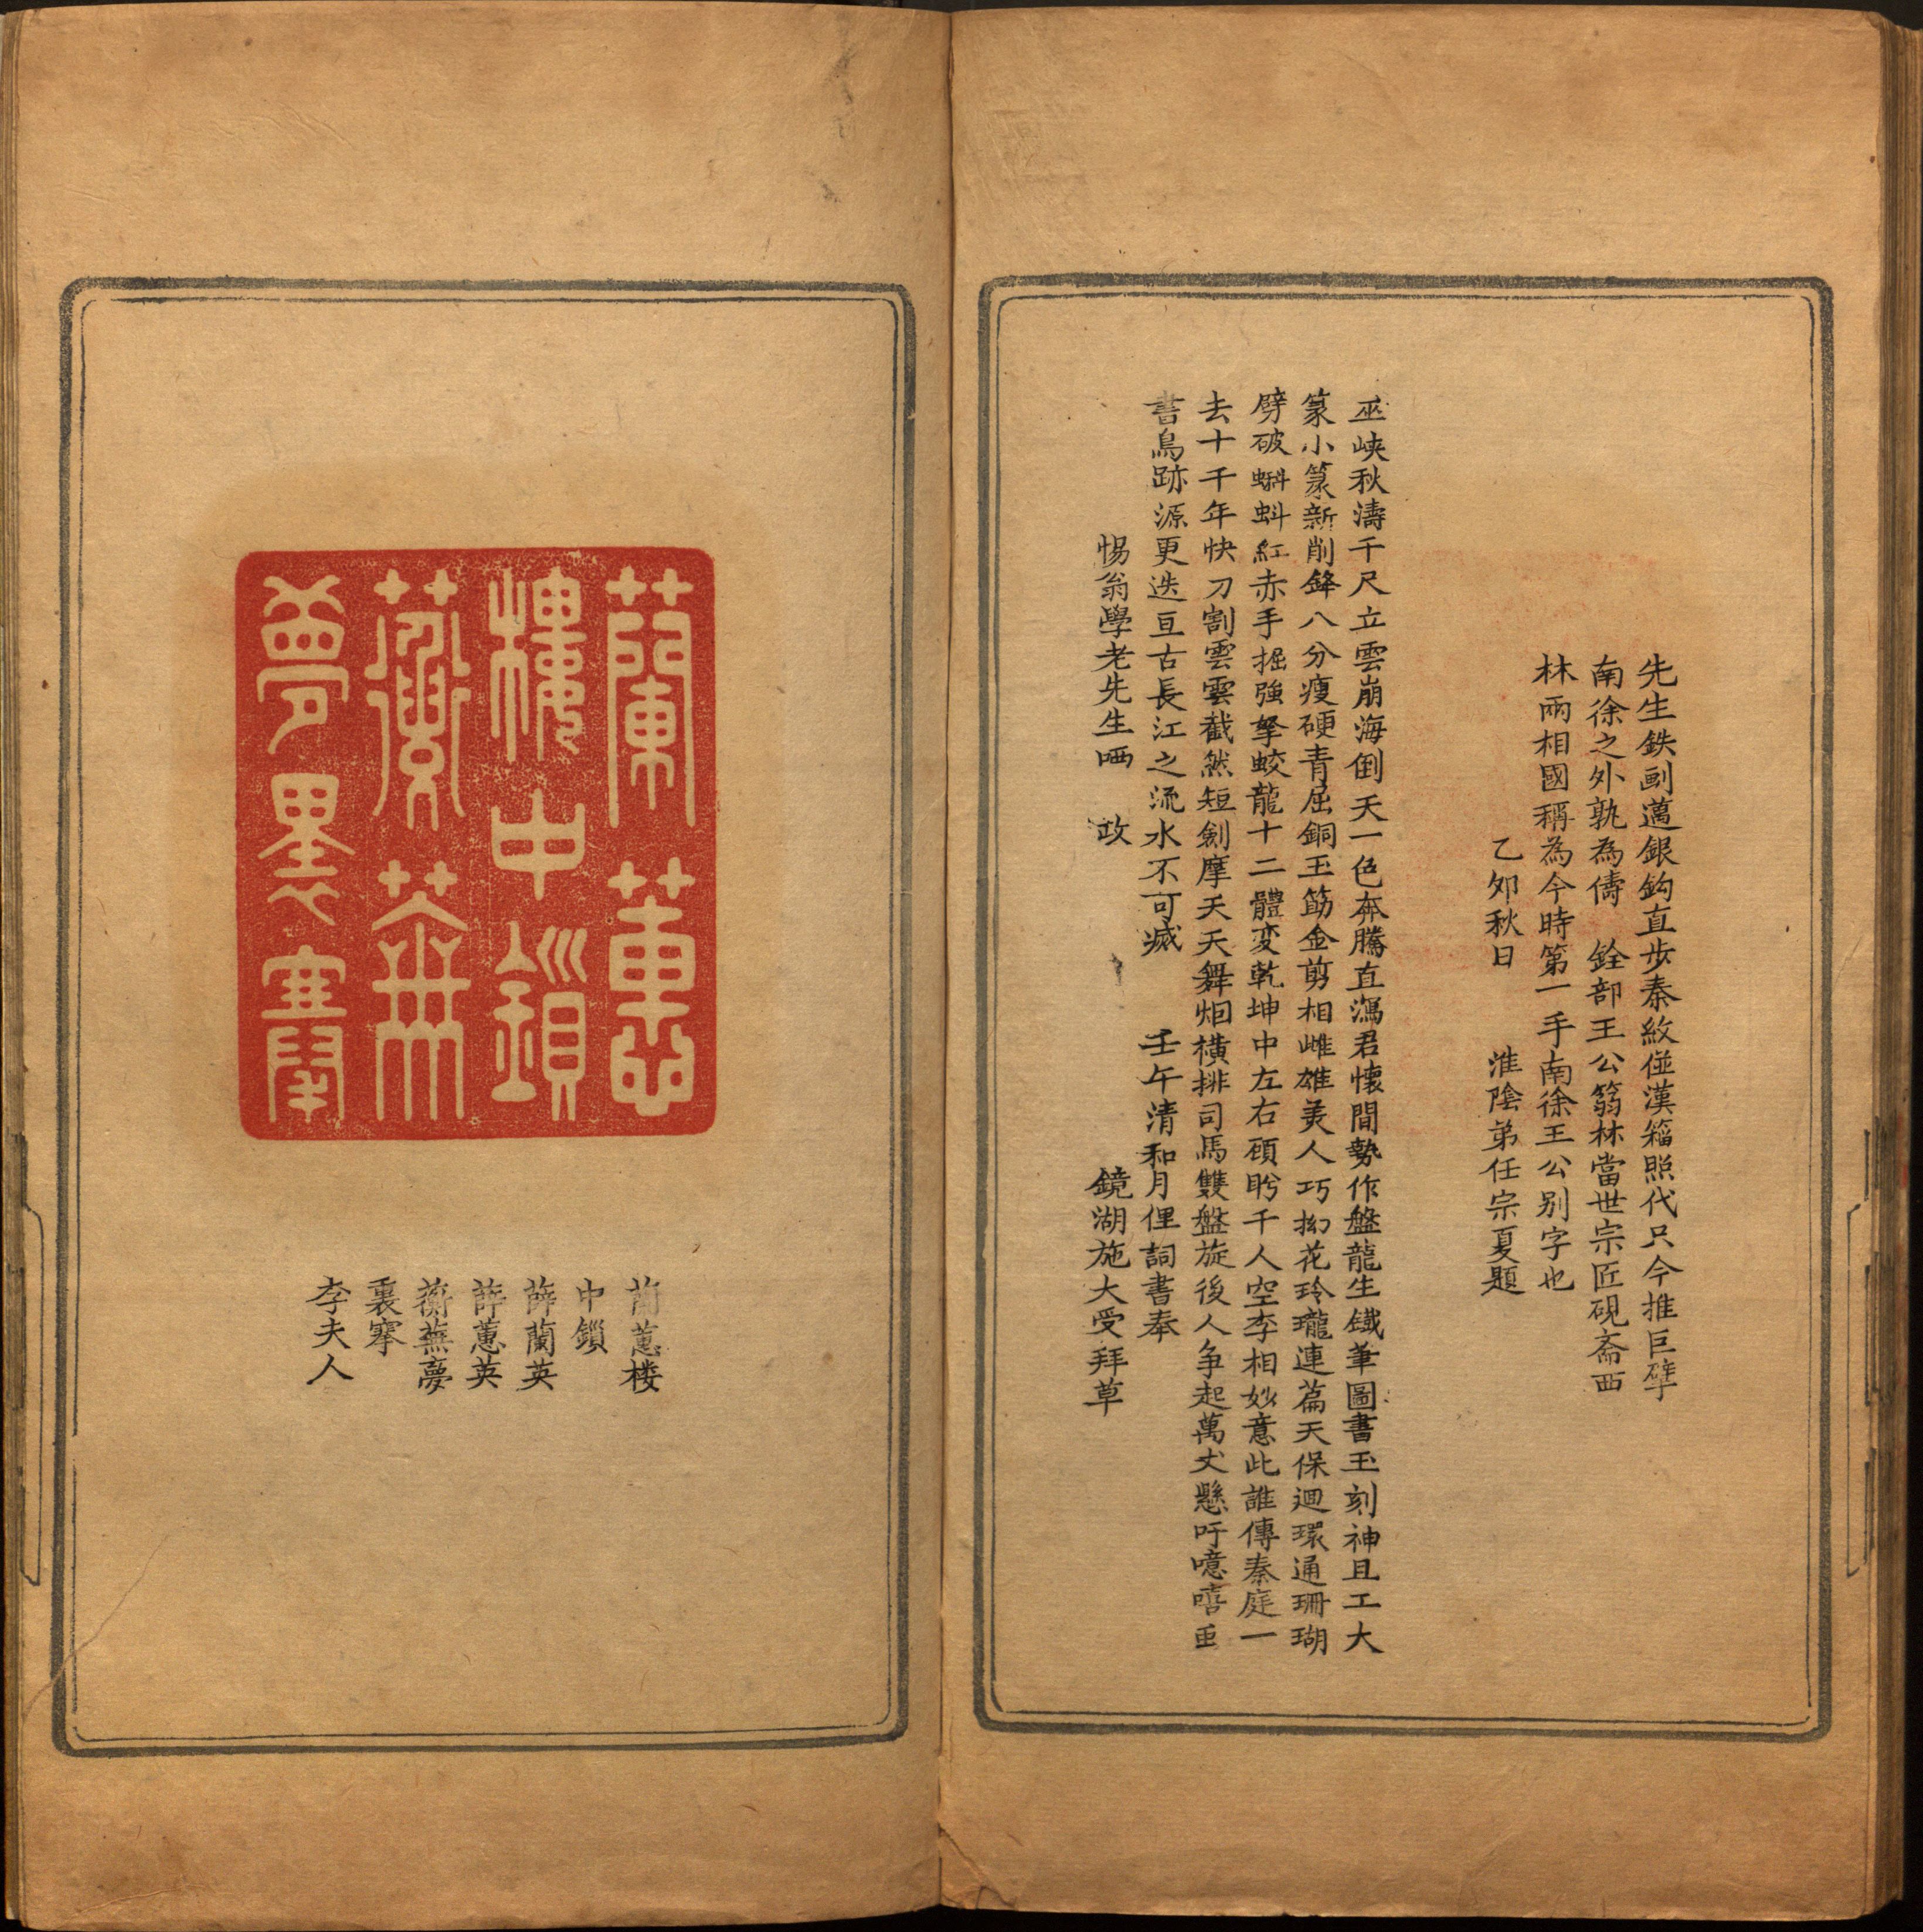 先生鉄劃邁銀鈎直步秦紋並漢籕照代只今推巨擘
南徐之外孰為儔　銓部王公篛林當世宗匠硯斋西
林兩相國稱為今時第一手南徐王公别字也
乙夘秋日　淮陰弟任宗夏題
巫峡秋濤千尺立雲崩海倒天一色奔騰直瀉君懷間勢作盤龍生鐵筆圖書玉刻神且工大
篆小篆新削鋒八分瘦硬青屈銅玉筯金剪相雌雄美人巧拗花玲瓏連篇天保迴環通珊瑚
劈破蝌蚪紅赤手掘強拏蛟龍十二體変乾坤中左右頋盻千人空李相妙意此誰傳秦庭一
去十千年快刀割雲雲截然短劍摩天天舞烟横排司馬雙盤旋後人争起萬丈懸吁噫嘻
書鳥跡源更迭亘古長江之流水不可滅　壬午清和月俚詞書奉
惕翁學老先生哂　政　鏡湖施大受拜草
蘭蕙
樓中鎖
蘅蕪
夢裏搴
蘭蕙楼
中鎖
薛蘭英
薛蕙英
蘅蕪夢
裏搴
李夫人